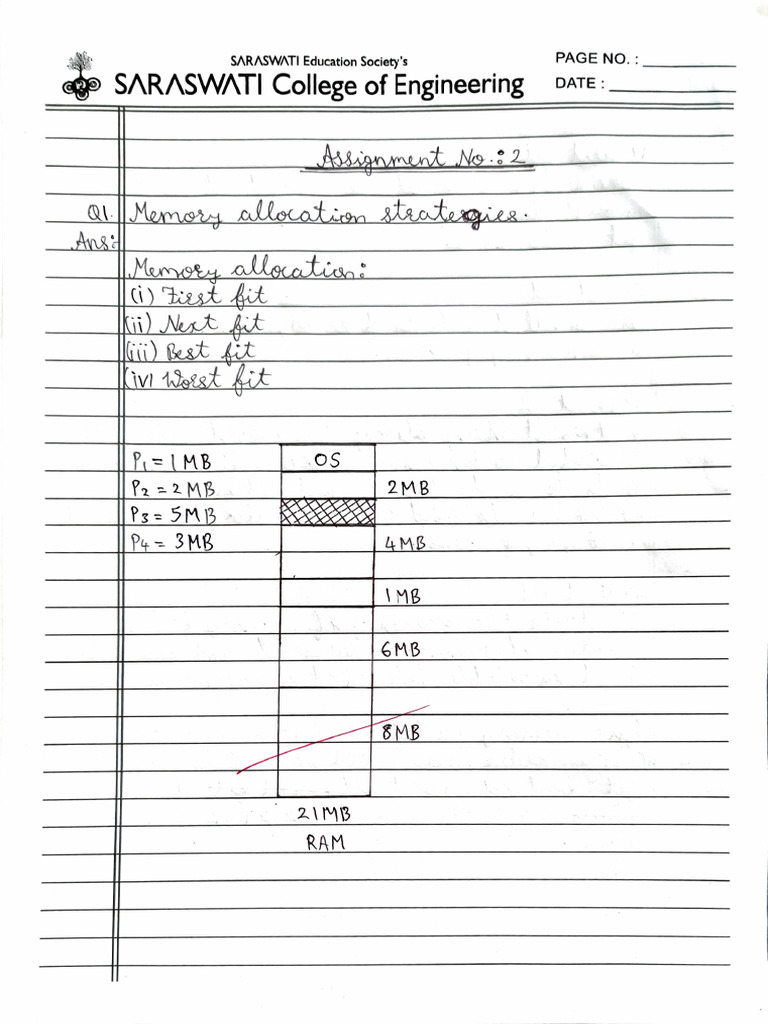 SARASWATI Education Society's
SARASWATI College of Engineering
PAGE NO. :
DATE :
Assignment No.: 2
Q1. Memory allocation strategies.
Ans:
Memory allocation:
(i) First fit
(ii) Next fit
(iii) Best fit
(iv) Worst fit
P1 = 1MB OS
P2 = 2MB 2MB
P3 = 5MB
P4 = 3MB 4MB
1MB
6MB
8MB
21MB
RAM